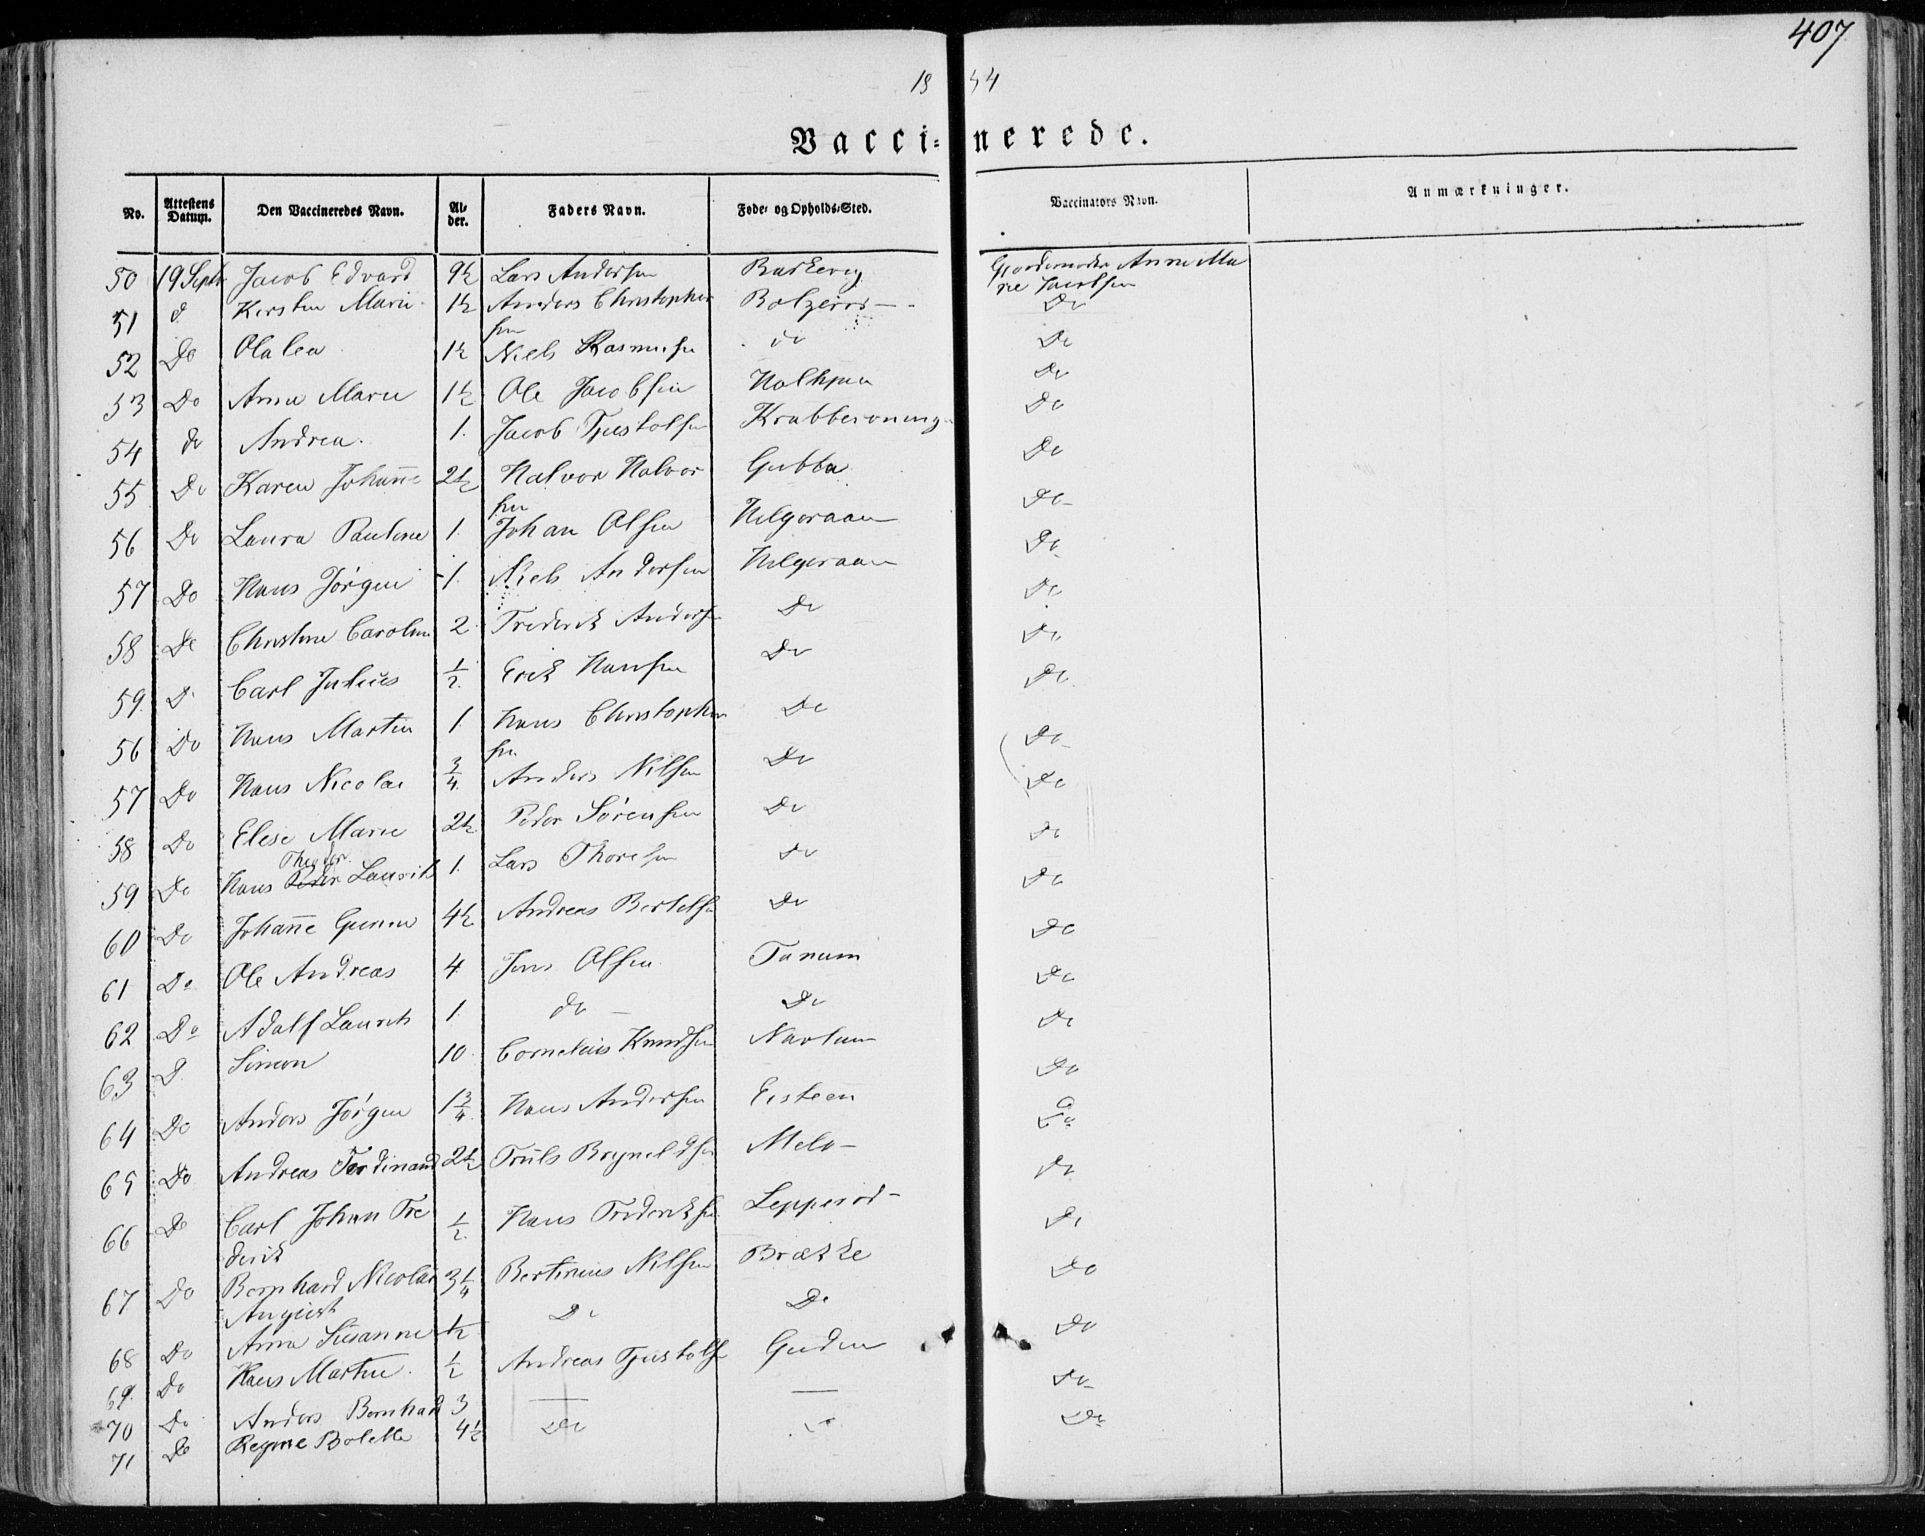 407
18 54
Vacci- nerede.
No. Attestens Datum. Den Vaccineredes Navn. Al- der. Faders Navn. Føde- og Opholds-Sted. Vaccinators Navn. Anmærkninger.
50 19 Septr Jacob Edvard 9½ Lars Andersen Barkevig Gjordemoder Anne Ma
rie Jacobsen
51 d Kirsten Marie 1½ Anders Christopher Bolzerød Do
sen
52 Do Olalea 1½ Niels Rasmusen do Do
53 Do Anna Marie 1½ Ole Jacobsen Holhjem Do
54 do Andrea. 1. Jacob Tjostolsen Krabberønning Do
55 Do Karen Johann- 2½ Halvor Halvor Gubba Do
sen
56 Do Laura Pauline 1. Johan Olsen Helgeraaen Do
57 Do Hans Jørgen 1. Niels Andersen Helgeraaen Do
58 Do Christine Caroline 2 Frederik Andersen Do Do
59. D Carl Julius ½ Erik Hansen Do Do
56 Do Hans Martin 1 Hans Christopher Do Do
sen
57 Do Hans Nicolai ¾ Anders Nilsen Do Do
58 Do Elese Marie 2½ Peder Sørensen Do Do
Theodor
59 Do Hans Peder Laurits 1. Lars Thoresen Do Do
60 Do Johanne Gunne 4½ Andreas Bertelsen Do Do
61 Do Ole Andreas 4 Jens Olsen Tanum Do
62 Do Adolf Laurits 1 do Do Do
63 D Simon 10 Cornelius Knudsen Navlum Do
64 Do Anders Jørgen 1¾ Hans Andersen Eisteen Do
65 Do Andreas Ferdinand 2½ Truls Bryneldsen Melø Do
66 Do Carl Johan Fre ½ Hans Frederiksen Lepperød Do
derik
67 Do Bernhard Nicolai 3¼ Bertinius Nilsen Brække Do
August
68 Do Anna Susanne ½ Do Do Do
69. Do Hans Martin. ½ Andreas Tjostolsen Guden Do
70 Do Anders Bernhard 3 — — Do
71 Do Regine Bolette 4½ Do